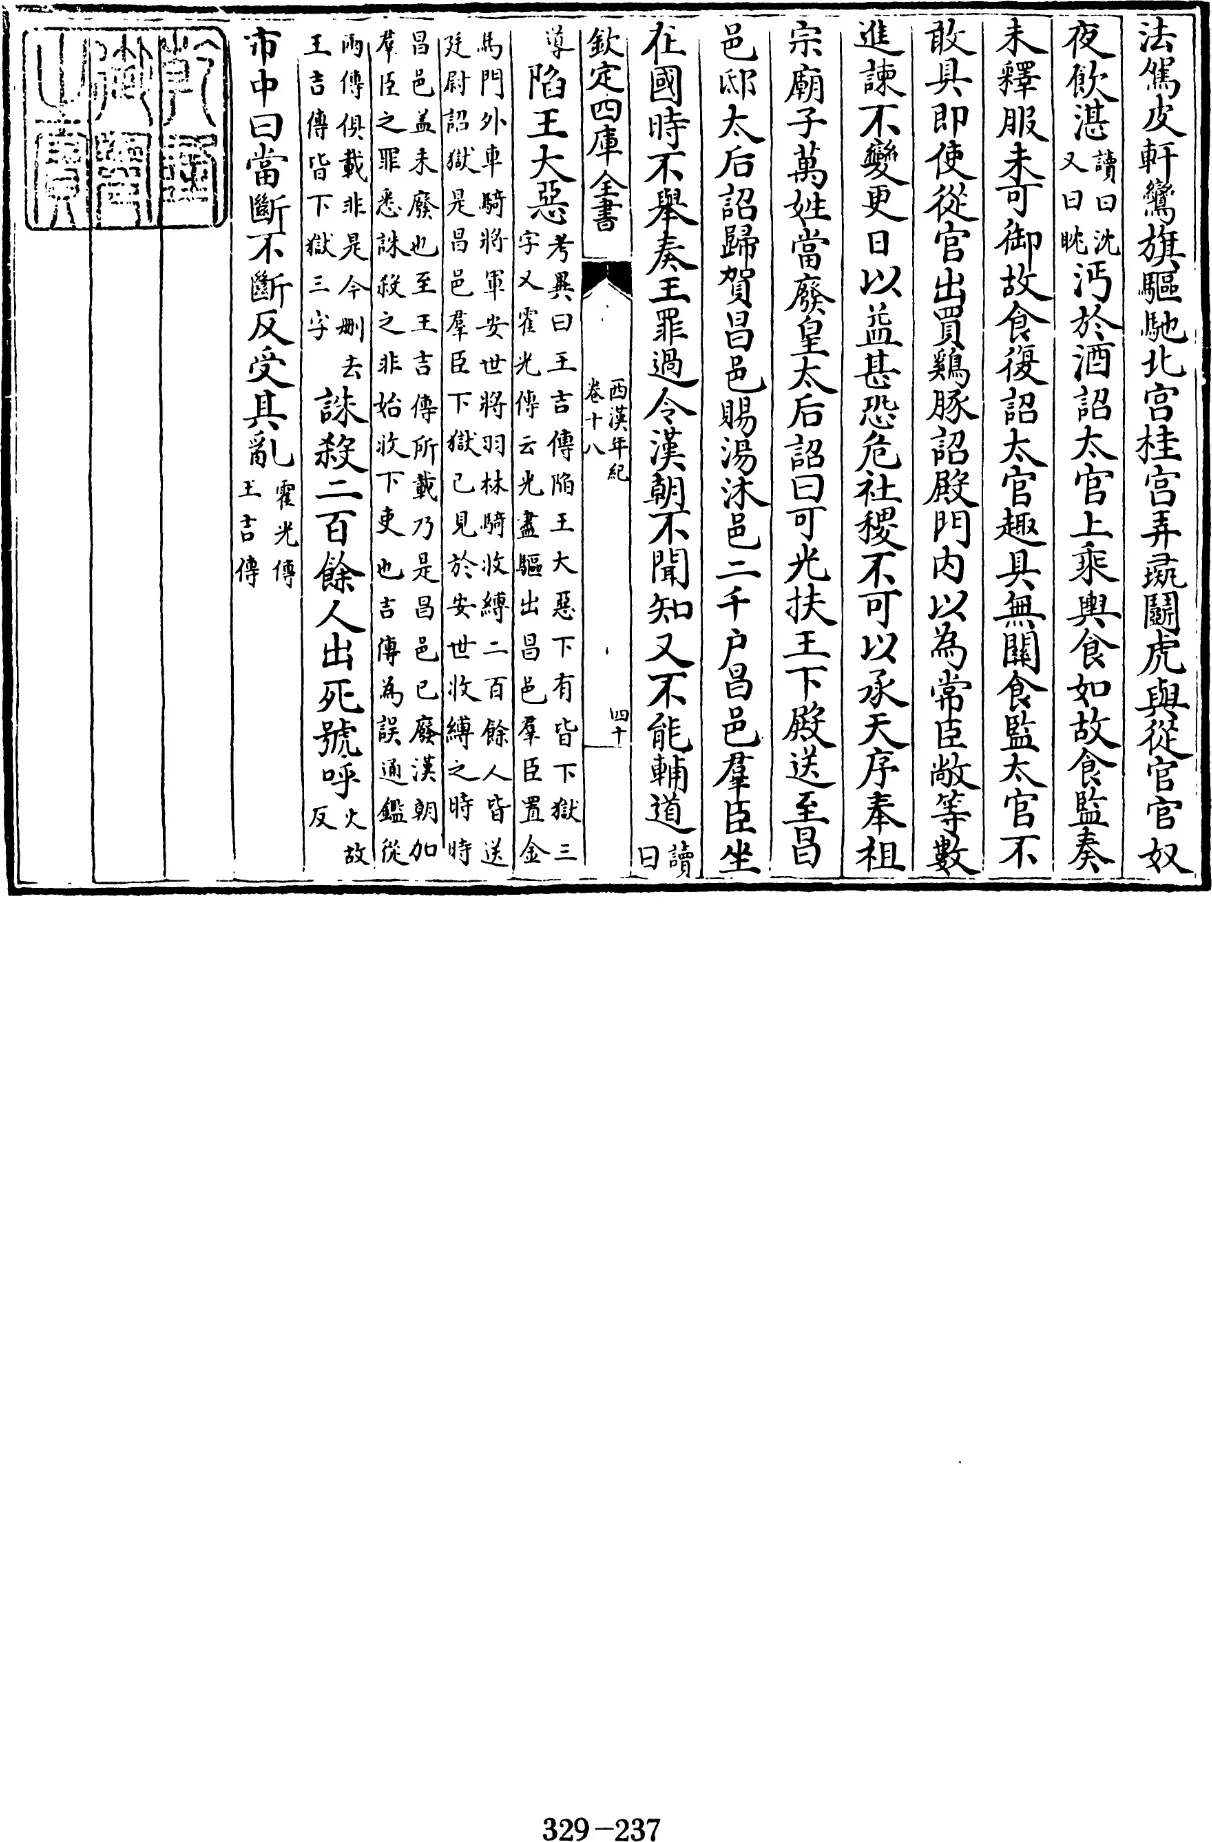 法駕皮軒鸞旗驅馳北宮桂宮弄彘鬭虎與從官官奴
夜飲湛讀曰沈又曰眈沔於酒詔太官上乘輿食如故食監奏
未釋服未可御故食復詔太官趣具無關食監太官不
敢具即使從官出買鷄豚詔殿門内以為常臣敞等數
進諫不變更日以益甚恐危社稷不可以承天序奉祖
宗廟子萬姓當廢皇太后詔曰可光扶王下殿送至昌
邑邸太后詔歸賀昌邑賜湯沐邑二千户昌邑羣臣坐
在國時不舉奏王罪過令漢朝不聞知又不能輔道讀曰
欽定四庫全書
西漢年紀
卷十八
四十
導陷王大惡考異曰王吉傳陷王大惡下有皆下獄三
字又霍光傳云光盡驅出昌邑羣臣置金
馬門外車騎將軍安世將羽林騎收縛二百餘人皆送
廷尉詔獄是昌邑羣臣下獄已見於安世收縛之時時
昌邑盖未廢也至王吉傳所載乃是昌邑已廢漢朝加
羣臣之罪悉誅殺之非始收下吏也吉傳為誤通鑑從
兩傳俱載非是今刪去
王吉傳皆下獄三字
誅殺二百餘人出死號呼火故反
市中曰當斷不斷反受其亂霍光傳王吉傳
329-237